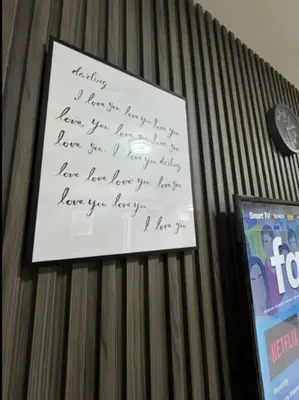 darling
I love you love you love you
love, you love you love you
love you. I love you darling
love love love you love you
love you love you
I love you
Smart TV
fa
NETFLIX